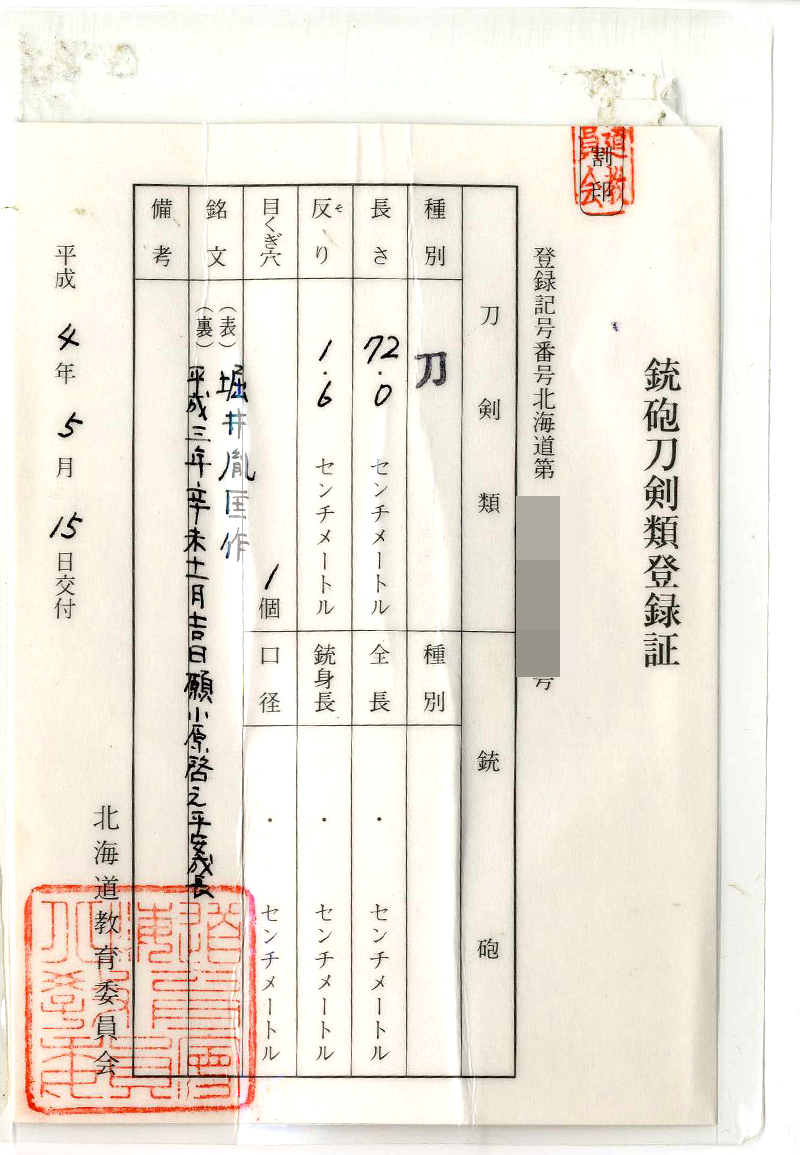 道教
員会
割印
銃砲刀剣類登録証
登録記号番号北海道第
号
刀剣類
銃砲
種別
刀
種別
長さ
72.0
センチメートル
全長
・
センチメートル
反り
そ
1.6
センチメートル
銃身長
・
センチメートル
目くぎ穴
1個
口径
・
センチメートル
銘文
(表)堀井胤匡作
(裏)平成三年辛未十一月吉日願小原啓之平安成長
備考
北海道教育委員会
平成4年5月15日交付